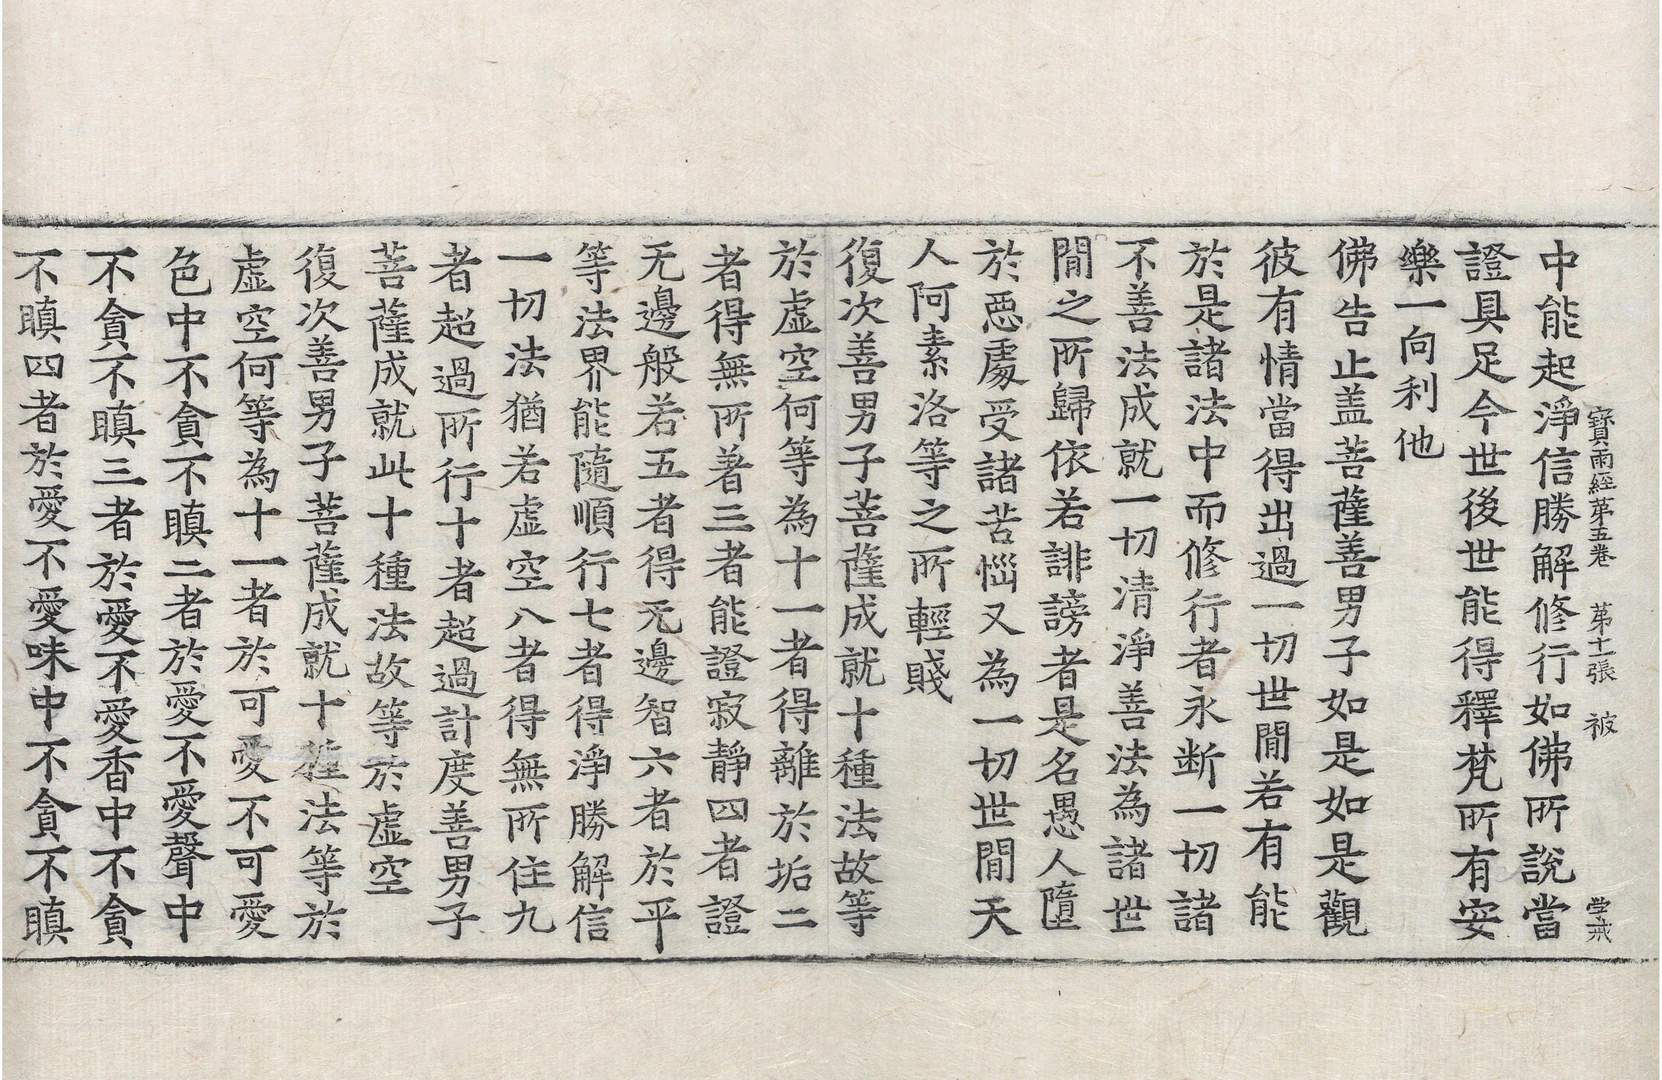 寶雨經第五卷　第十一張　被　学戒
中能起淨信勝解修行如佛所說當
證具足今世後世能得釋梵所有安
樂一向利他
佛告止盖菩薩善男子如是如是觀
彼有情當得出過一切世閒若有能
於是諸法中而修行者永断一切諸
不善法成就一切清淨善法為諸世
閒之所歸依若誹謗者是名愚人墮
於惡處受諸苦惱又為一切世閒天
人阿素洛等之所輕賤
復次善男子菩薩成就十種法故等
於虛空何等為十一者得離於垢二
者得無所著三者能證寂靜四者證
无邊般若五者得无邊智六者於平
等法界能隨順行七者得淨勝解信
一切法猶若虛空八者得無所住九
者超過所行十者超過計度善男子
菩薩成就此十種法故等於虛空
復次善男子菩薩成就十種法等於
虛空何等為十一者於可愛不可愛
色中不貪不瞋二者於愛不愛聲中
不貪不瞋三者於愛不愛香中不貪
不瞋四者於愛不愛味中不貪不瞋